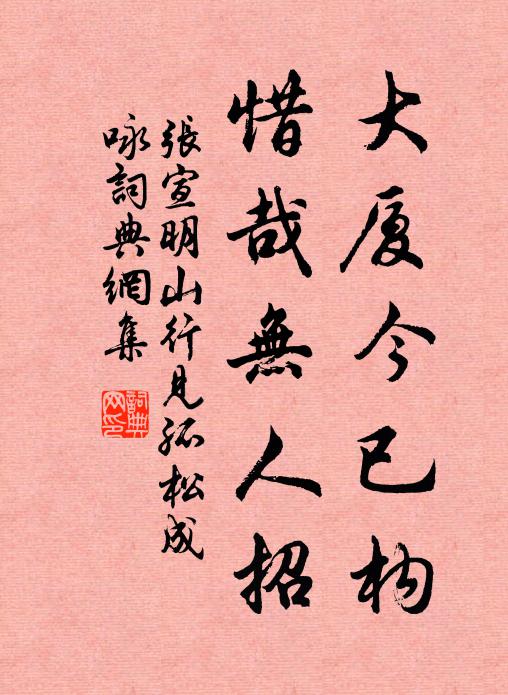 大厦今已构
惜哉無人招
張宣明山行見孤松成
咏詞典網集
詞典
网印